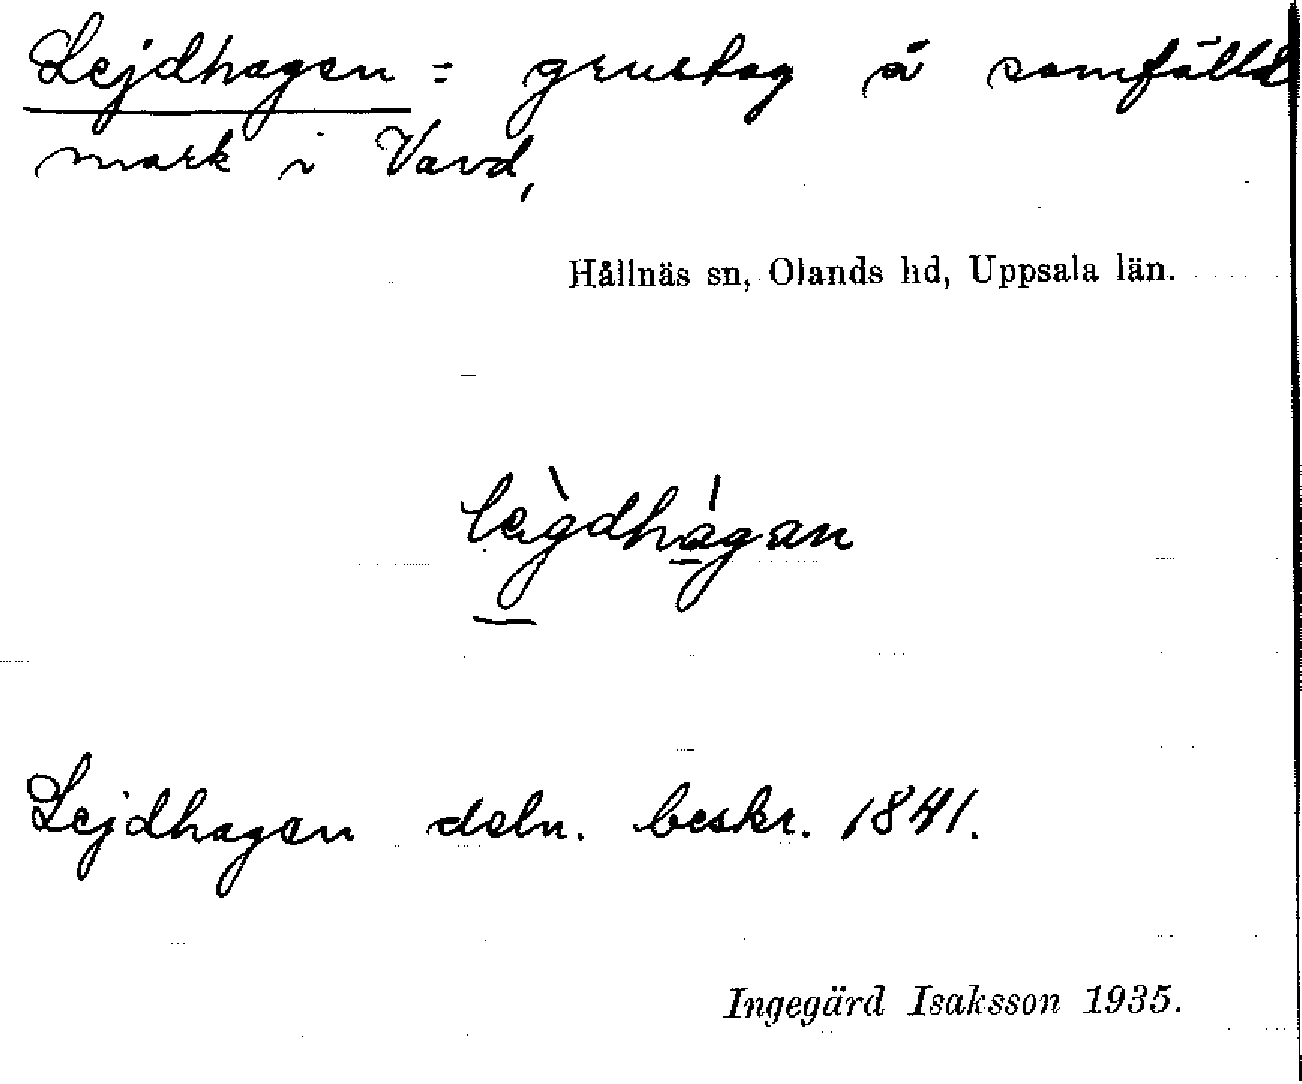 Lejdhagen = grustag å samfälld
mark i Vavd,
Hållnäs sn, Olands hd, Uppsala län.
lèigdhágan
Lejdhagen deln. beskr. 1841.
Ingegärd Isaksson 1935.